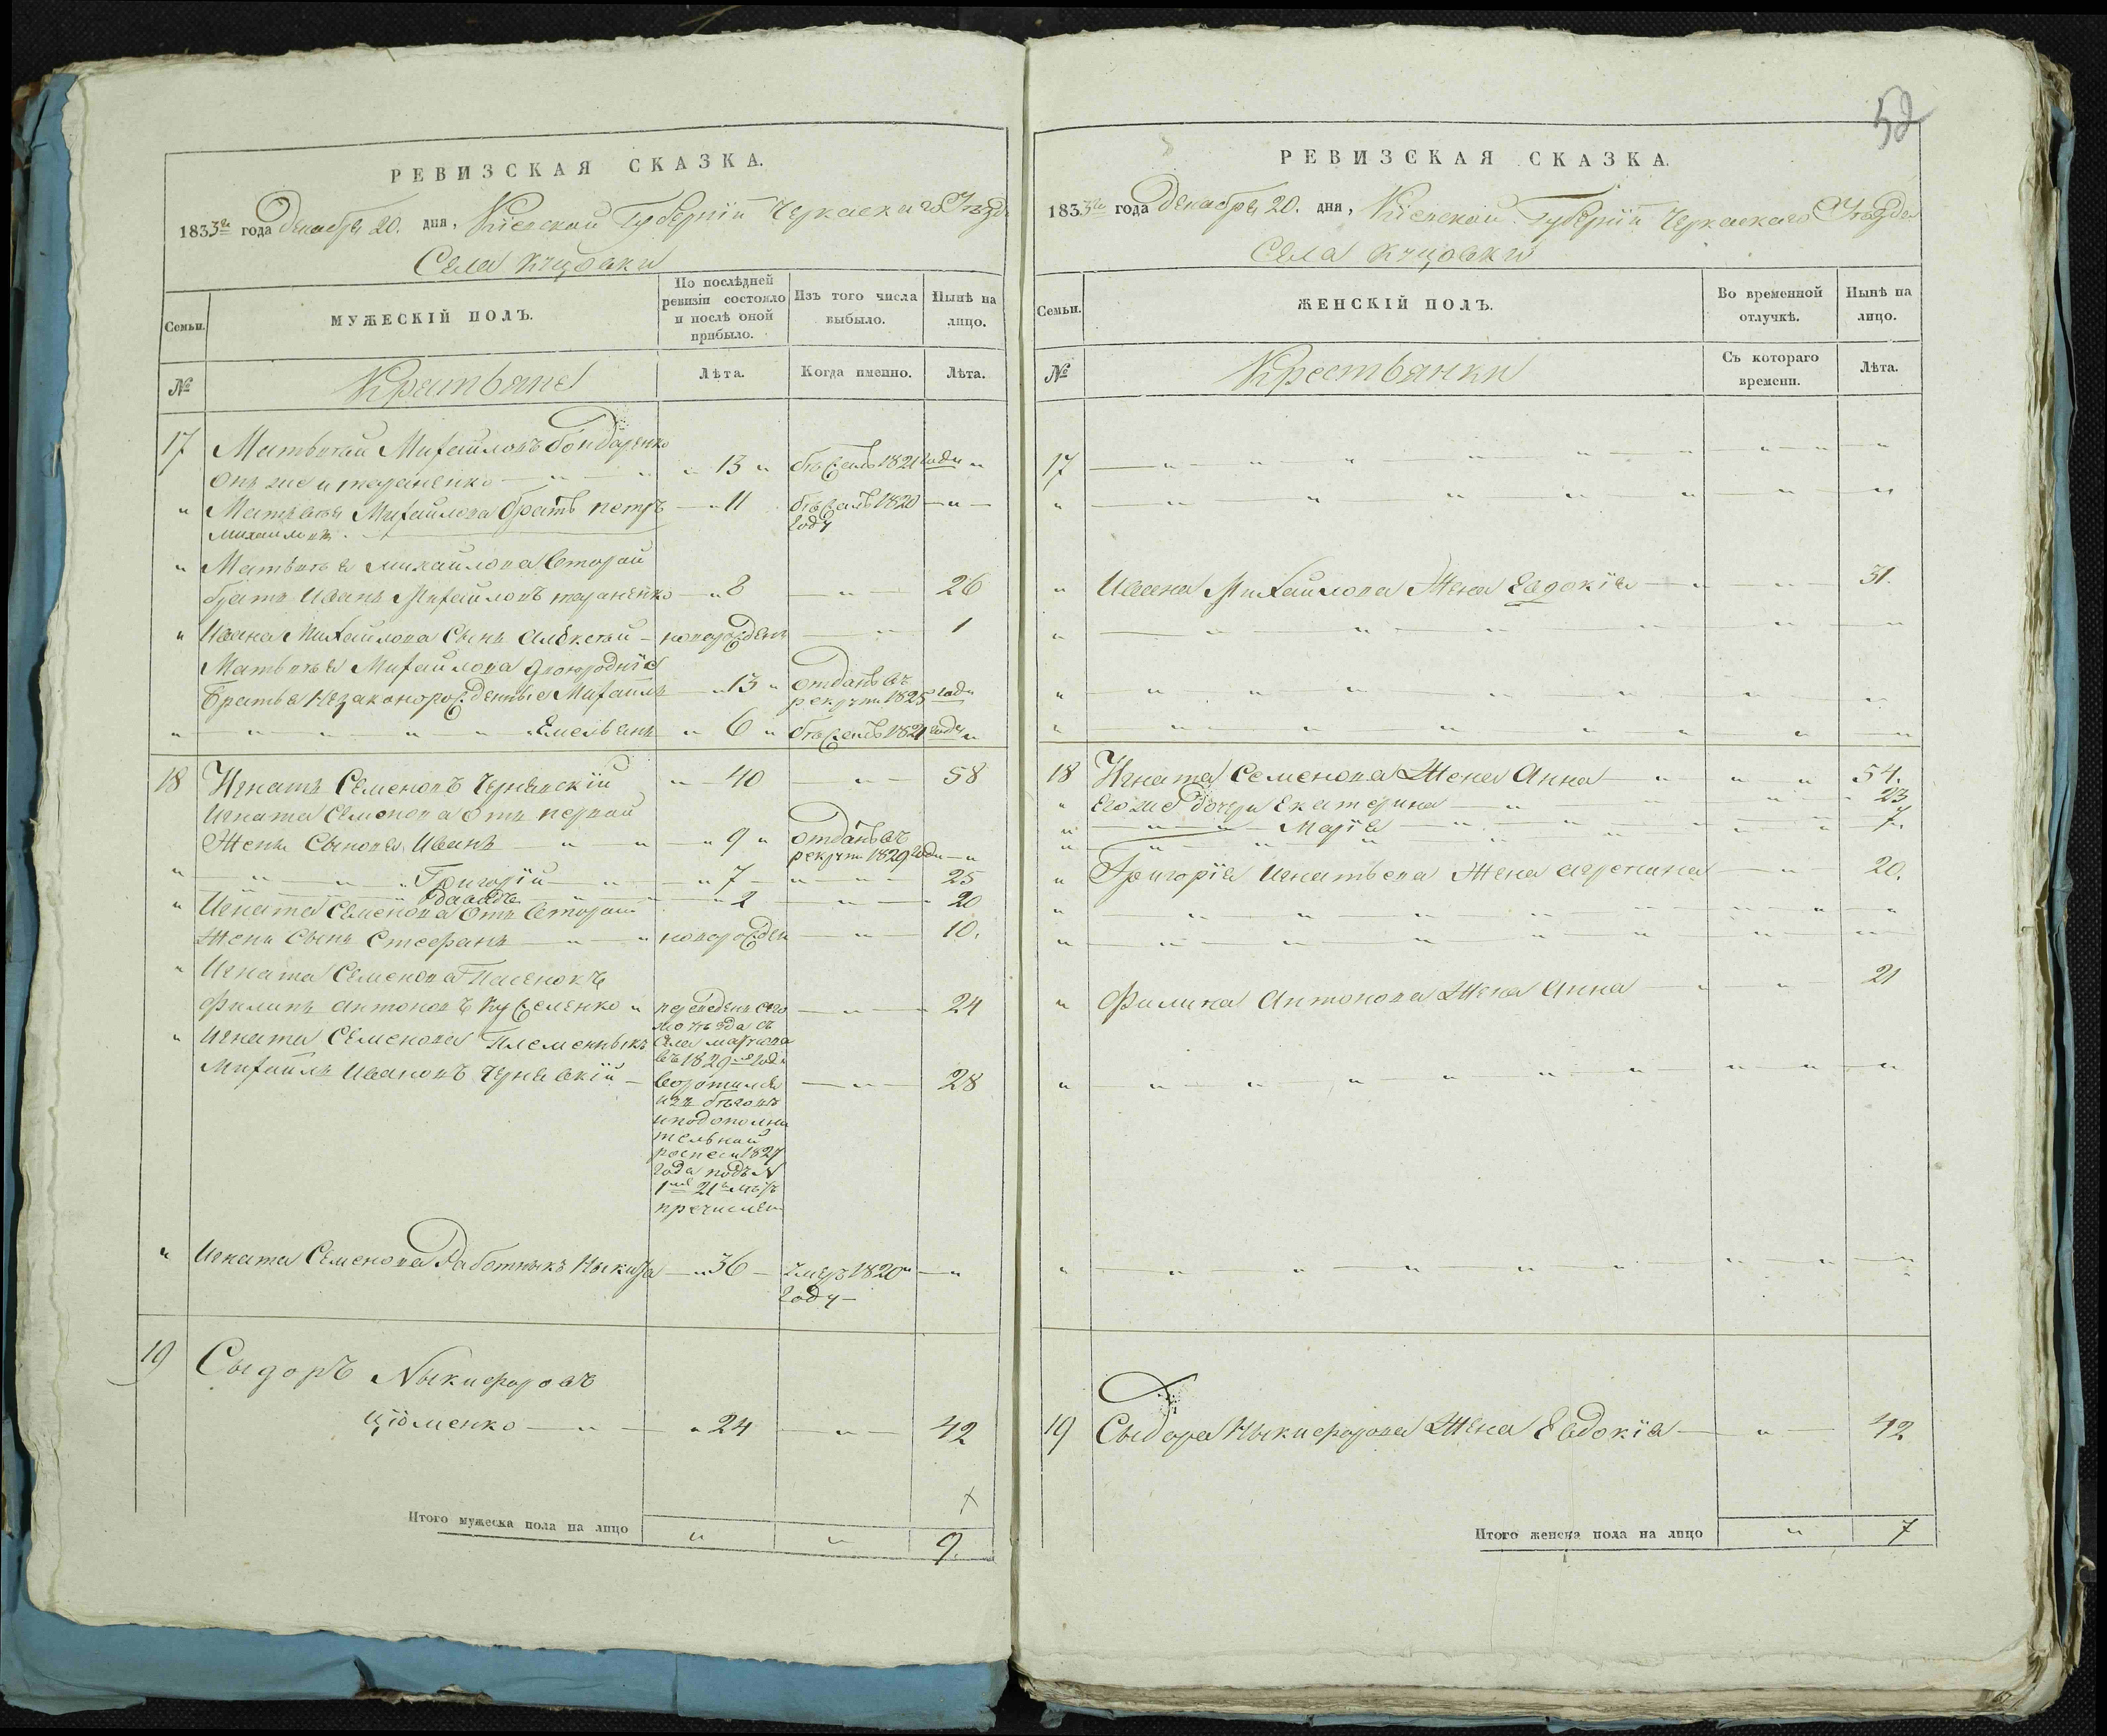 52
РЕВИЗСКАЯ СКАЗКА.
1833го года Декабря 20. дня, Кіевской Губерніи Черкаскаго Уѣзда
Села Куцовки
Семьи.
МУЖЕСКІЙ ПОЛЪ.
По послѣдней ревизіи состояло и послѣ оной прибыло.
Изъ того числа выбыло.
Нынѣ на лицо.
№
Крестьяне
Лѣта.
Когда именно.
Лѣта.
17 Матвѣй Михайловъ Бондаренко
онъ же и тараненко — " — " — 13 " бѣжалъ 1821 года "
" Матвѣя Михайлова братъ петръ — " 11 бѣжалъ 1820 — " —
Михайловъ. году
" Матвѣя Михайлова Второй
братъ Иванъ Михайловъ тараненко — " 8 — " — 26
" Ивана Михайлова Сынъ Алексѣй — новорожденъ — " — 1
Матвѣя Михайлова двоюродніе
Братья Незаконорожденные Михаилъ — " 13 " отданъ въ
рекруты 1825 года
" — " — " — " — " Емельянъ " 6 " бѣжалъ 1821 году "
18 Игнатъ Семеновъ Чернявскій " — 40 — " — 58
Игната Семенова отъ первой
Жены Сыновья Иванъ — " — " " 9 " отданъ въ
рекруты 1829 года — "
" — " — " Григорій — " — " 7 — " — " — 25
Давидъ — " — " 2 — " — " 20
" Игната Семенова отъ второй
Жены Сынъ Стефанъ — " — " новорожден — " — 10.
" Игната Семенова Пасенокъ
Филипъ Антоновъ Кужеленко " переведенъ сего — " — 24
же уѣзда съ
" Игната Семенова Племенныкъ Села
въ 1829 году
Михаилъ Ивановъ Чернявскій — воротился — " — 28
изъ бѣговъ
и по дополни
тельной
1827
года подъ №
1м 21
причислен
" Игната Семенова Работныкъ Ныкита — " 36 — умеръ 1820 — "
году —
19 Сыдоръ Ныкифоровъ
Цюменко — " — " 24 — " — 42
Итого мужеска пола на лицо " " 9.
РЕВИЗСКАЯ СКАЗКА.
1833го года Декабря 20. дня, Кіевской Губерніи Черкаскаго Уѣзда
Села Куцовки
Семьи.
ЖЕНСКІЙ ПОЛЪ.
Во временной отлучкѣ.
Нынѣ на лицо.
№
Крестьянки
Съ котораго времени.
Лѣта.
17 — " — " — " — "
" Ивана Михайлова Жена Евдокія — " — " — 31.
18 Игната Семенова Жена Анна — " " " 54.
" Его же дочери Екатерина — " " " 23
" — " — " — Марія — " — " — " 7.
" Григорія Игнатьева Жена Агрепина — " — 20.
" Филипа Антонова Жена Анна — " — " — 21
19 Сыдора Ныкифорова Жена Евдокія — " — 42
Итого женска пола на лицо " 7